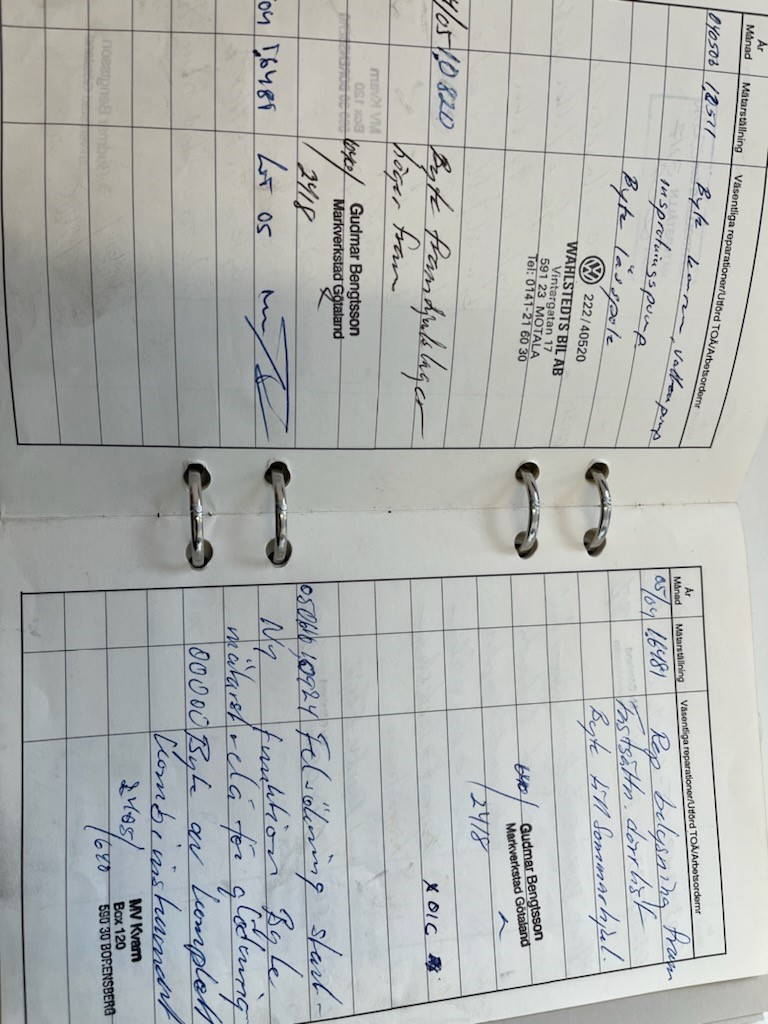 År
Månad
Mätarställning
Väsentliga reparationer/Utförd TOÅ/Arbetsordernr
040506 12511 Byte kamrem, vattenpump
insprutningspump
Byte låsspole
222/40520
WAHLSTEDTS BIL AB
Vintergatan 17
591 23 MOTALA
Tel: 0141-21 60 30
Byte framhjulslager
höger fram
Gudmar Bengtsson
Markverkstad Götaland
2418
16481
År
Månad
Mätarställning
Väsentliga reparationer/Utförd TOÅ/Arbetsordernr
05/04 16481 Rep belysning fram
Fastsättn. dörrlist
Byte till Sommarhjul.
Gudmar Bengtsson
Markverkstad Götaland
2418
OIC
Felsökning start-
Ny funktion Byte
mätare relä för glödning
Byte av komplett
Kombiinstrument
2405/640
MV Kvarn
Box 120
590 30 BORENSBERG